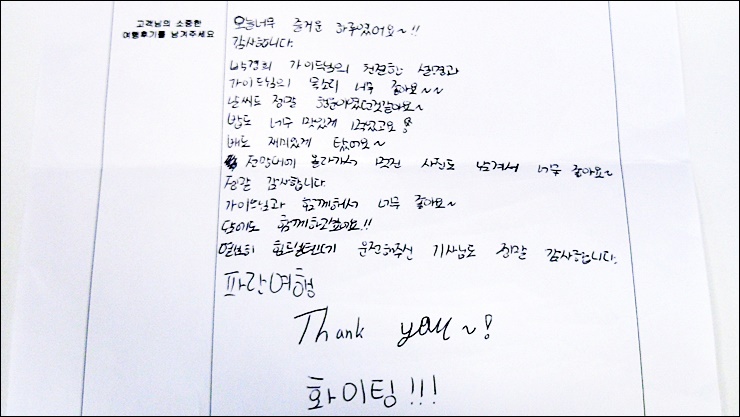 고객님의 소중한
여행후기를 남겨주세요
오늘너무 즐거운 하루였어요~!!
감사합니다.
박경희 가이드님의 친절한 설명과
가이드님의 목소리 너무 좋아요~~
날씨도 정말
밥도 너무 맛있게 먹었고요
배도 재미있게 탔어요~
전망대에 올라가서 멋진 사진도 남겨서 너무 좋아요~
정말 감사합니다.
가이드님과 함께해서 너무 좋아요~
함께하고싶어요!!
열심히 운전해주신 기사님도 정말 감사합니다.
파란여행
Thank you~!
화이팅!!!